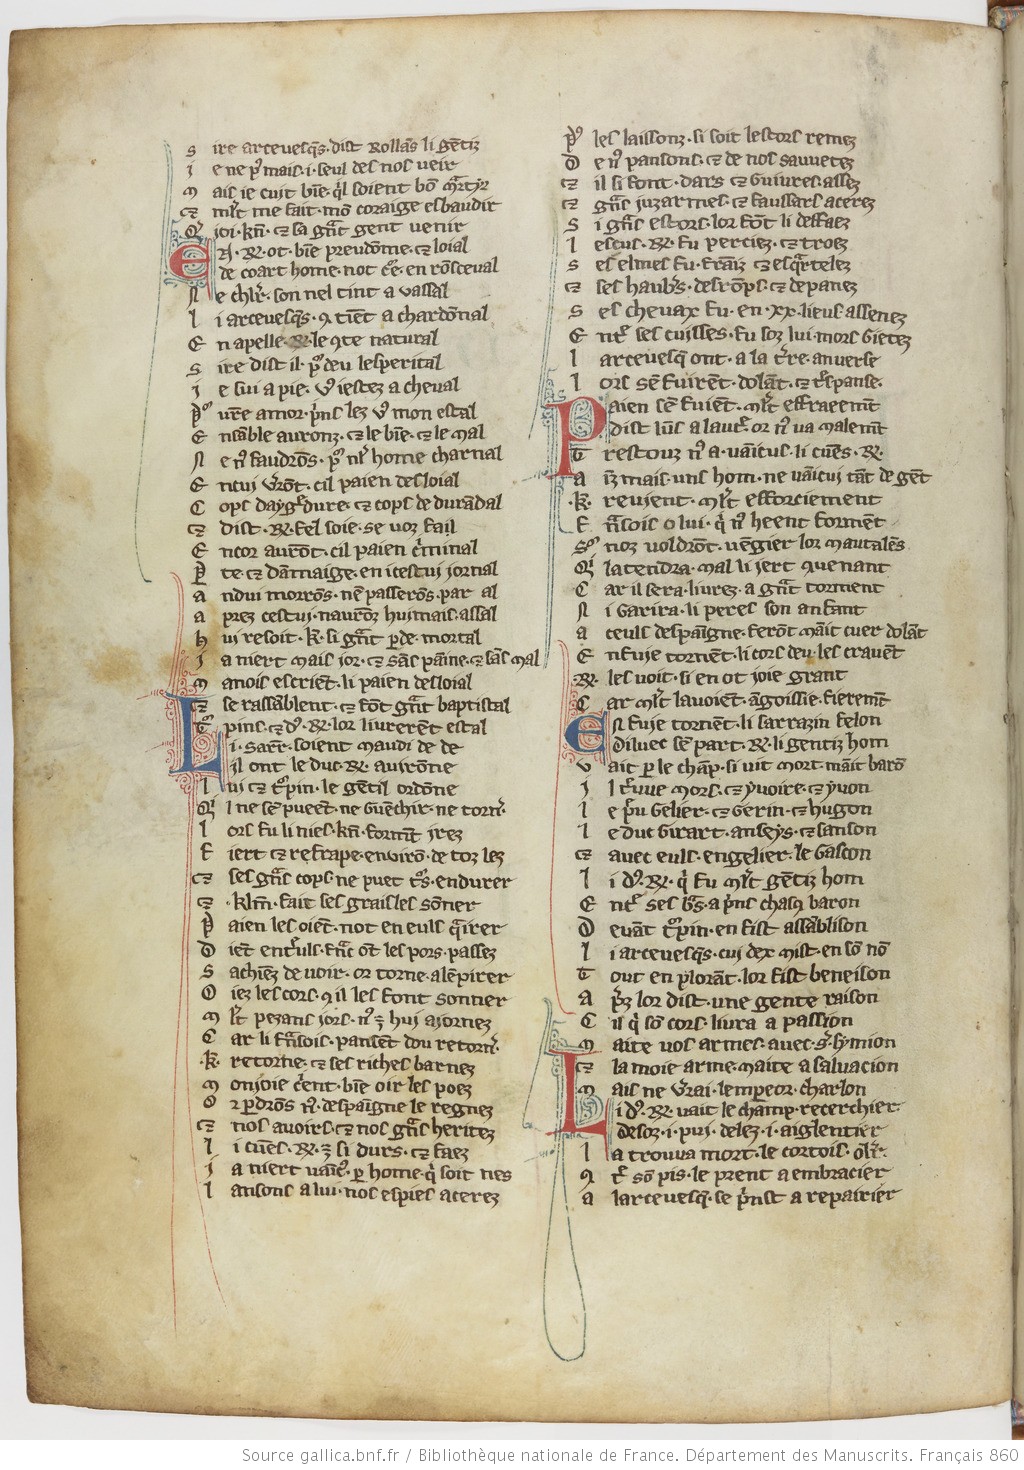 Sire arceuesq̄s. dist Rollās li gētiz
Je ne pͬ mais .i. seul des nos veir
Mais ie cuit bn̄e q̇l soient bō mͣrtyr
⁊ ml̄t me fait. mō coraige esbaudir
Q̄ ioi. kn̄. ⁊ sa gn̄t gent venir
E R̄. ot. bn̄e preudōme. ⁊ loial
de coart home. not cͬe. en rōsceual
Ne chlr̄. son nel tint a vassal
Li arceuesq̄s. ꝯtiēt a chardōnal
En apelle. R̄. le ꝯte natural
Sire dist il. pͬ deu lesperital
Je sui a pie. vͦ iestez a cheual
Pͬ vr̄e amor. pͬns lez vͦ mon estal
Ensāble auronz. ⁊ le bn̄e. ⁊ le mal
Ne nͦ faudrōs. pͬ nl̄ home charnal
Encui vrōt. cil paien desloial
Cops daygͬdure. ⁊ cops de durādal
⁊ dist. R̄. fel soie. se voz fail
Encor aurōt. cil paien cͥminal
Pͬte. ⁊ dāmaige. en icestui iornal
Andui morrōs. nē passerōs. par al
Aprez cestui. naurōz huimais. assal
Hui resoit. k̄. si gn̄t ꝑde. mortal
Ja niert mais ior. ⁊ sās pāine. ⁊ sās mal
Manois escriēt. li paien desloial
⁊ se rassāblent. ⁊ fōt gn̄t baptistal
Tͬpins. ⁊ dͦ. R̄. lor liurerēt estal
Li. sarr̄. soient maudi de de
Jl ont le duc. R̄. auirōne
Lui ⁊ tͬpin. le gētil ordōne
Q̇l ne sē pueēt. ne guēchir. ne tornͬ
Lors fu li nies. kn̄. formt̄ irez
Fiert ⁊ refrape. enuirō. de toz lez
⁊ ses gn̄s cops. ne puet tͬs. endurer
⁊. klm̄. fait ses graisles sōner
Paien les oiēt. not en euls qͣirer
Diēt entͬuls. frn̄c ōt les pors. passez
Sachiez de uoir. or torne. alēpirer
Oiez les cors. ꝯ il les font sonner
Ml̄t pezans iors. nͦ ē hui aiornez
Car li frn̄sois. pansēt dou retornͬ
.K. retorne. ⁊ ses riches barnez
Monioie cͥent. bn̄e oir les poez
Or ꝑdrōs nͦ. despaīgne le regnez
⁊ nos auoirs. ⁊ nos gn̄s heritez
Li cuēs. R̄. ē si durs. ⁊ faez
Ja niert vaīcͦ. ꝑ home. q̇ soit nes
Lansons a lui. nos espies acerez
Pͬ les laissonz. si soit lestors remez
De nͦ pansons. ⁊ de nos sauuetez
⁊ il si font. dars ⁊ guiures. assez
⁊ gn̄s iuzarmes. ⁊ faussars acerez
Si gn̄s estors. lor fōt li deffaez
Lescus. R̄. fu perciez. ⁊ troez
Ses elmes fu. frāiz ⁊ esqͣrtelez
⁊ ses haubͬs. desrōps. ⁊ depanez
Ses cheuax fu. en. xx. lieus assenez
Entͬ ses cuisses. fu soz lui. mors gietez
Larceuesq̄ ont. a la tͬre. anuerse
Lors sē fuirēt. dolāt. ⁊ tͬspanse.
Paien sē fuiēt. ml̄t effraeemt̄
Dist lūs a lautͬ. or nͦ va malemt̄
Trestouz nͦ a. vāicus. li cuēs. R̄.
Aīz mais. uns hom. ne vāicui tāt de gēt
.K. reuient. ml̄t efforciement
Frn̄sois o lui. q̇ nͦ heent forment
Sͬ noz voldrōt. vēgier lor mautalēs
Q̇ latendra. mal li iert. quenant
Car il sera. liurez. a gn̄t torment
Ni garira. li peres son anfant
A ceuls despaīgne. ferōt māit cuer dolāt
En fuie tornēt. li cors deu. les crauēt
R̄. les voit. si en ot ioie grant
Car ml̄t lauoiēt. āgoissie. fieremt̄
En fuie tornēt. li sarrazin felon
Diluec sē part. R̄. li gentiz hom
Vait ꝑ le chāp. si vit mort. māit barō
Jl trͬuue mors. ⁊ yuoire. ⁊ yuon
Le pͬu gelier. ⁊ gerin. ⁊ hugon
Le duc girart. anseys. ⁊ sanson
⁊ auec euls. engelier. le gascon
Li dͦ. R̄. q̇ fu ml̄t gētiz hom
Entͬ ses bͬs. a pͬns chasq̄ baron
Deuāt tͬpin. en fist assāblison
Li arceuesq̄s. cui dex mist. en sō nō
Tout en plorāt. lor fist beneison
Apͬz lor dist. une gente raison
Cil q̇ sō cors. liura a passion
Maite vos armes. auec sͬ. symion
⁊ la moie arme. maite a saluacion
Mais ne vͬrai. lemꝑeor. charlon
Li dͦ. R̄. vait le champ. recerchier.
Desoz .i. pui. delez .i. aiglentier
La trouua mort. le cortois. oliͬ.
ꝯtͬ sō pis. le prent a embracier
A larceuesq̄. se pͥnst a repairier
Source gallica.bnf.fr / Bibliothèque nationale de France. Département des Manuscrits. Français 860